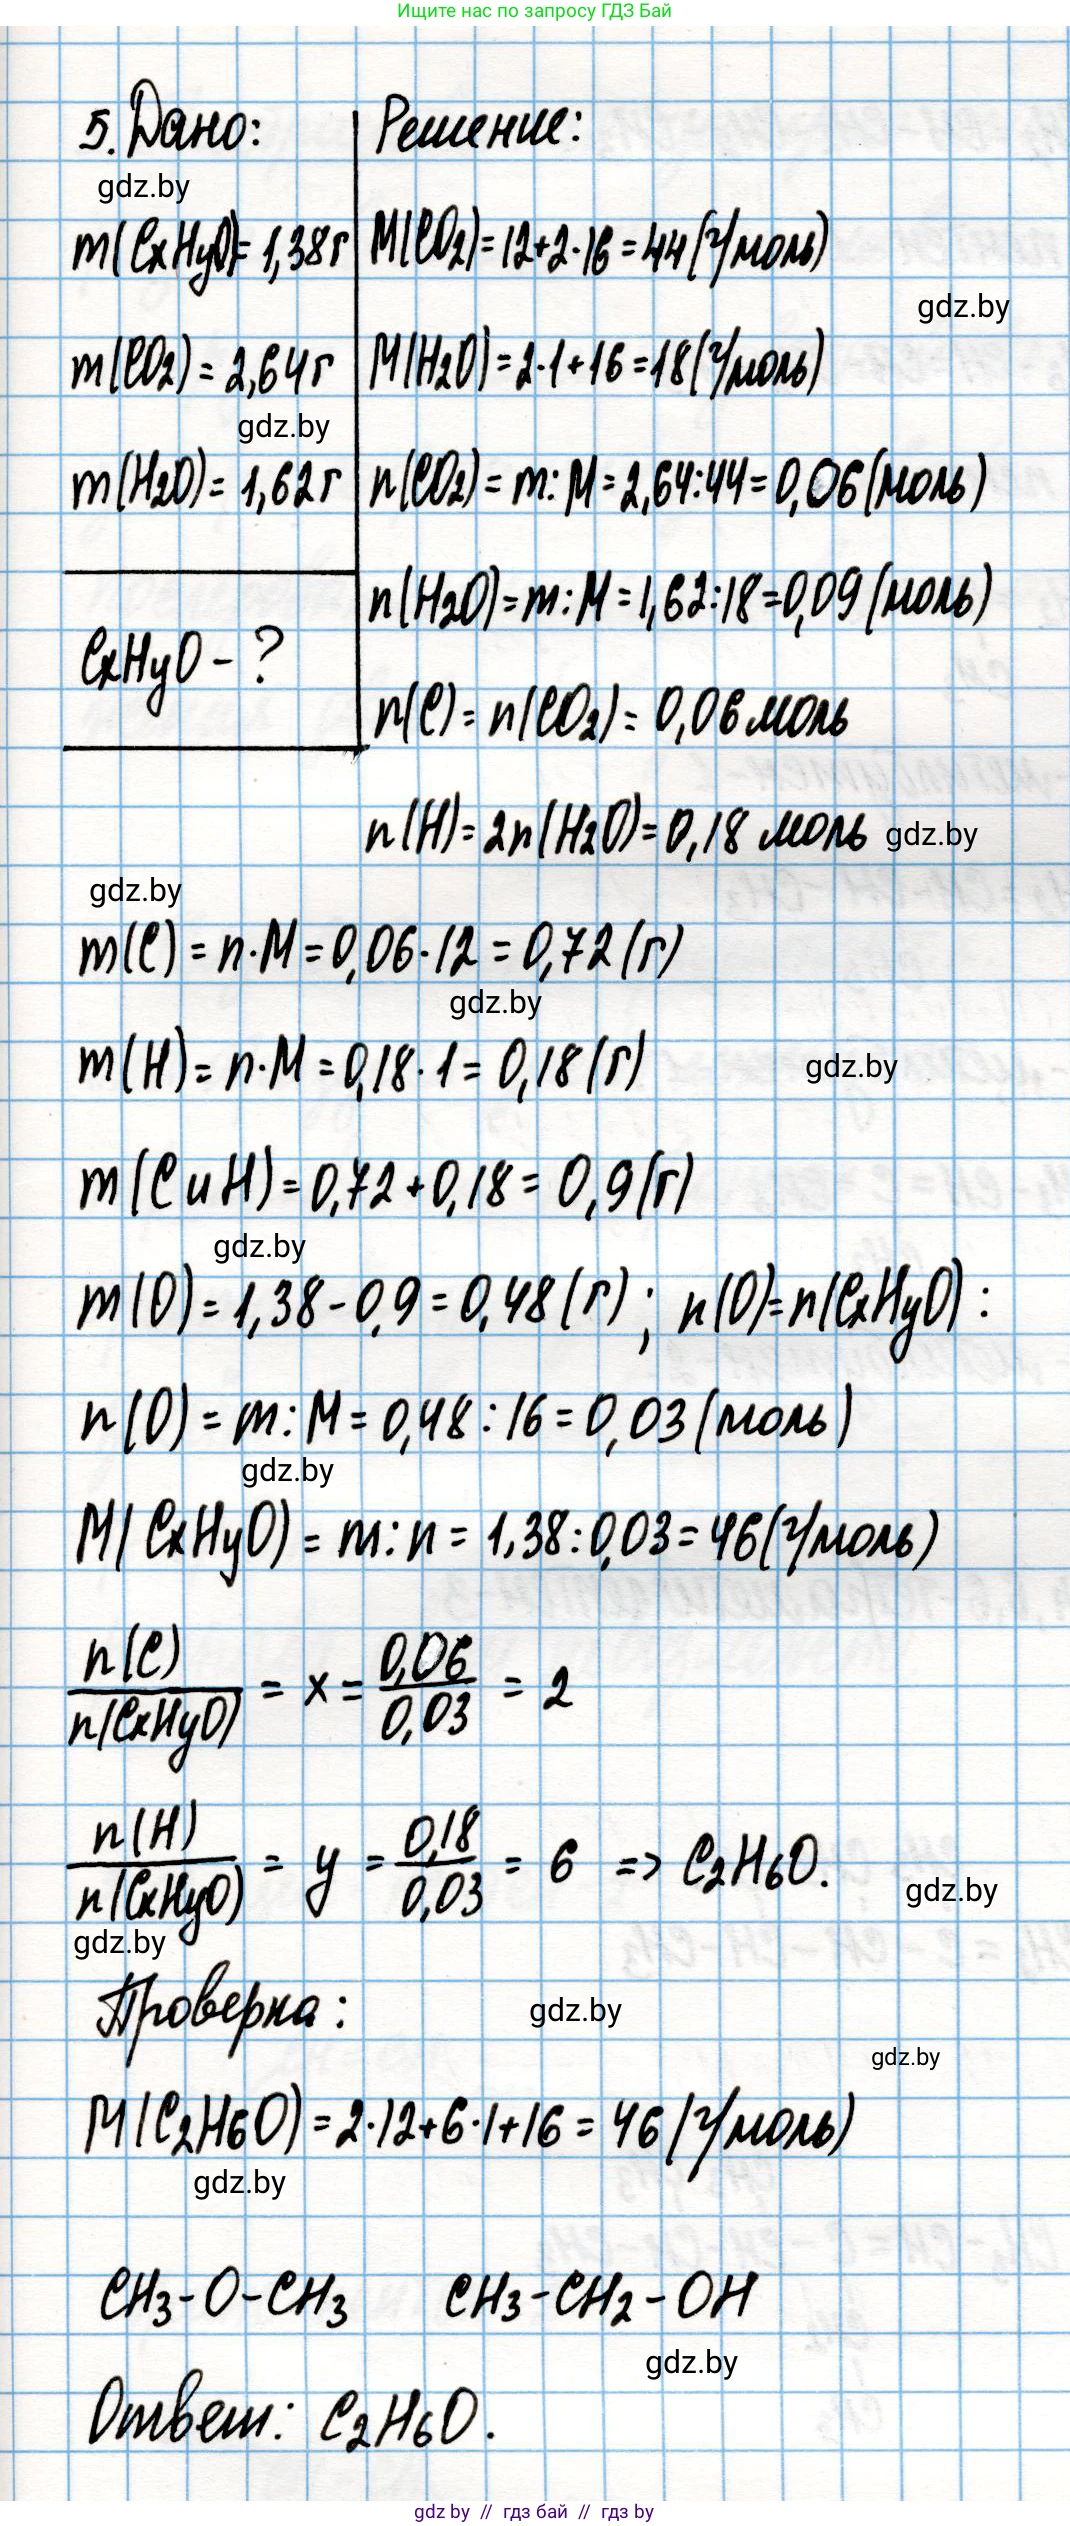 Ищите нас по запросу ГДЗ Бай
5. Дано:
Решение:
gdz.by
m(CxHyO)= 1,38г
M(CO2)=12+2·16=44(г/моль)
gdz.by
m(CO2)= 2,64г
M(H2O)=2·1+16=18(г/моль)
gdz.by
m(H2O)= 1,62г
n(CO2)= m:M=2,64:44=0,06(моль)
n(H2O)=m:M=1,62:18=0,09(моль)
CxHyO - ?
n(C)= n(CO2)= 0,06моль
n(H)= 2n(H2O)=0,18 моль gdz.by
gdz.by
m(C)= n·M=0,06·12 = 0,72(г)
gdz.by
m(H)= n·M=0,18·1= 0,18(г)
gdz.by
m(C и H)=0,72+0,18= 0,9(г)
gdz.by
m(O)=1,38-0,9=0,48(г); n(O)=n(CxHyO):
n(O)= m:M= 0,48:16=0,03(моль)
gdz.by
M(CxHyO)= m:n= 1,38:0,03=46(г/моль)
n(C)/n(CxHyO) = x = 0,06/0,03 = 2
n(H)/n(CxHyO) = y = 0,18/0,03 = 6 => C2H6O.
gdz.by
gdz.by
Проверка:
gdz.by
gdz.by
M(C2H6O)=2·12+6·1+16= 46(г/моль)
gdz.by
CH3-O-CH3 CH3-CH2-OH
gdz.by
Ответ: C2H6O.
gdz by // гдз бай // гдз by